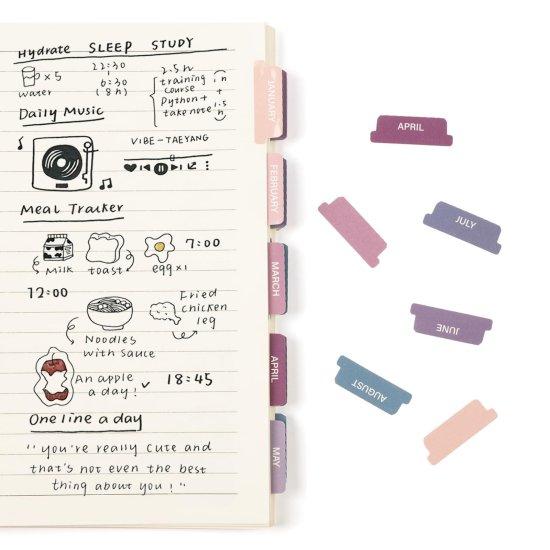 Hydrate SLEEP STUDY
x 5
water
22:30
6:30
(8h)
2.5h
training
course
Python+
take note
1h
+
1.5
h
Daily Music
VIBE-TAEYANG
Meal Tracker
Milk toast egg x1 7:00
12:00
Noodles
with sauce
Fried
chicken
leg
An apple
a day! 18:45
One line a day
"you're really cute and
that's not even the best
thing about you!"
JANUARY
FEBRUARY
MARCH
APRIL
MAY
APRIL
JULY
JUNE
AUGUST